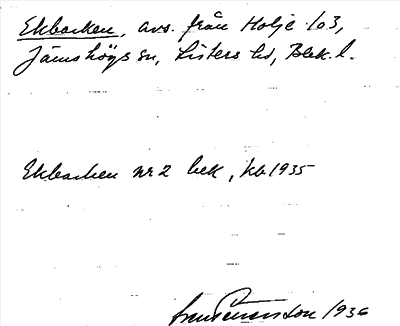 Ekbacken, avs. från Holje 1o3,
Jämshögs sn, Listers hd, Blek. l.
Ekbacken nr 2 bek, kb 1935
1936